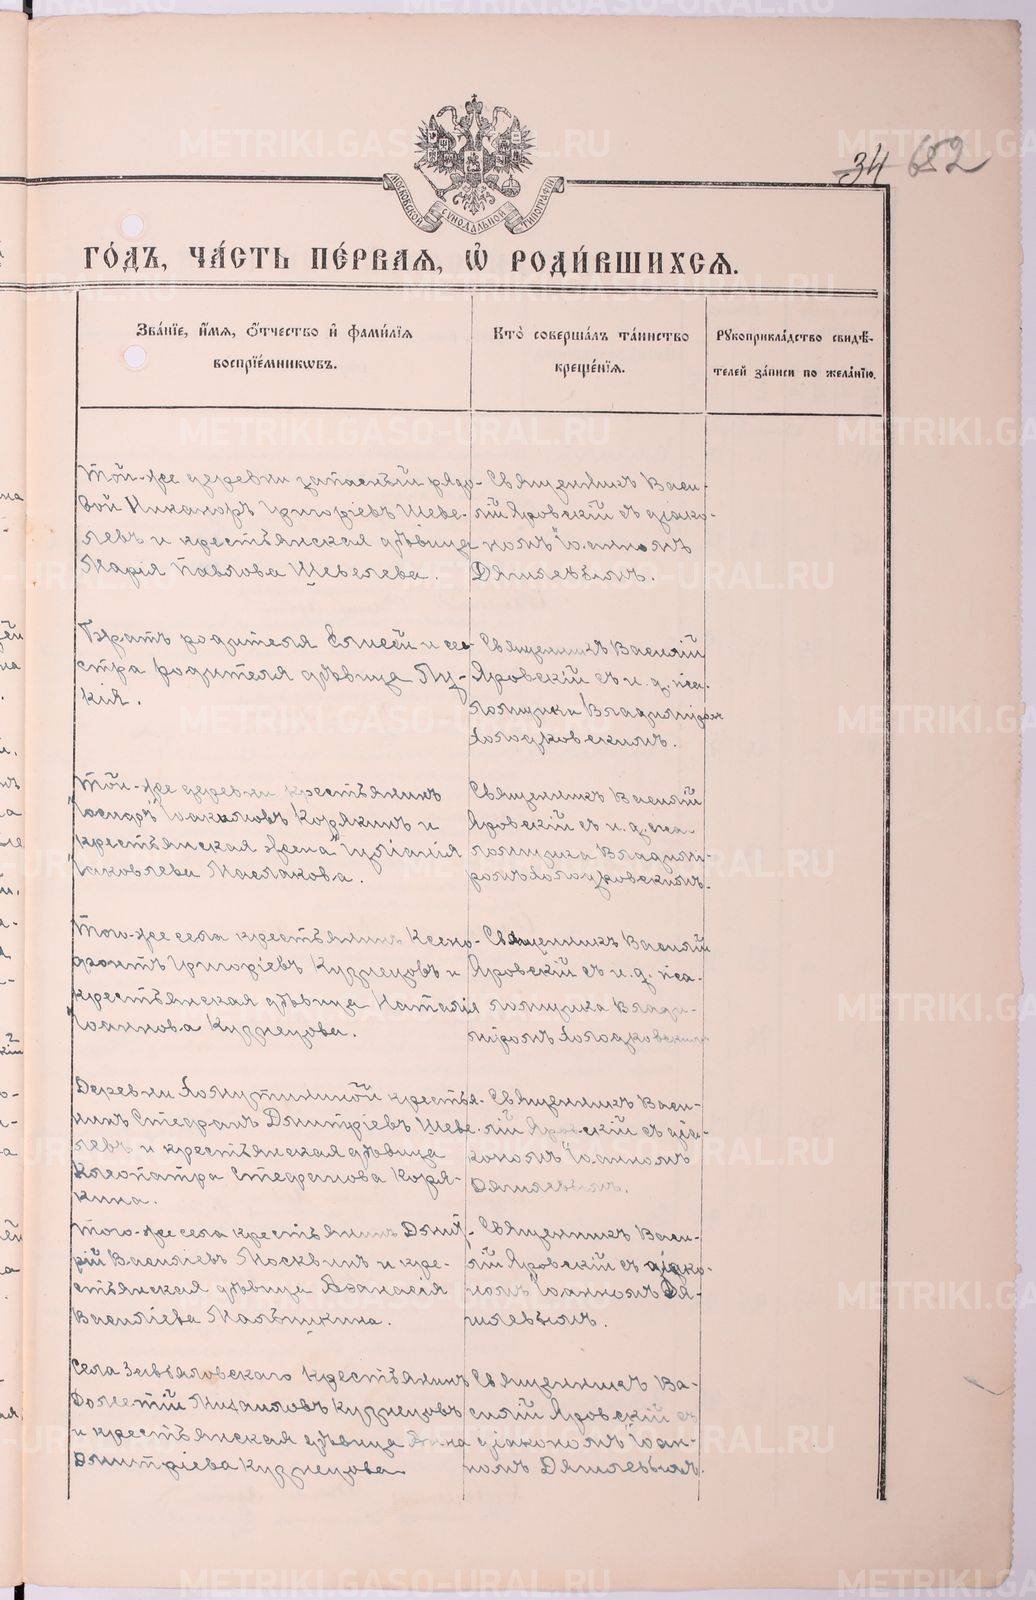 34 682
МОСКОВСКОЙ СѴНОДАЛЬНОЙ ТИПОГРАФІИ
ГО́ДЪ, ЧА́СТЬ ПЕ́РВАѦ, Ѡ҆ РОДИ́ВШИХСѦ.
Зва́нїе, и҆́мѧ, ѻ҆́тчество и҆ фами́лїѧ
воспрїе́мникѡвъ.
Кто̀ соверша́лъ та́инство
креще́нїѧ.
Рꙋкоприкла́дство свидѣ́-
телей за́писи по жела́нїю.
Той-же деревни запасный рядо-
вой Никаноръ Григорiевъ Шеве-
левъ и крестьянская дѣвица
Марiя Павлова Шевелева.
Священникъ Васи-
лiй Яровскiй съ дiако-
номъ Iоанномъ
Братъ родителя Елисей и се-
стра родителя дѣвица Лу-
кiя.
Священникъ Василiй
Яровскiй съ и. д. пса-
ломщика Владимiром
Холодковскимъ.
Той-же деревни крестьянинъ
Корякинъ и
крестьянская жена Iулiанiя
Iаковлева Маслакова.
Священникъ Василiй
Яровскiй съ и. д. пса-
ломщика Владимi-
ромъ Холодковскимъ.
Того-же села крестьянинъ Ксено-
фонтъ Григорiевъ Кузнецовъ и
крестьянская дѣвица Наталiя
Iоаннова Кузнецова.
Священникъ Василiй
Яровскiй съ и. д. пса-
ломщика Влади-
мiромъ Холодковским
Деревни Хомутининой крестья-
нинъ Стефанъ Димитрiевъ Шеве-
левъ и крестьянская дѣвица
Клеопатра Стефанова Коря-
кина.
Священникъ Васи-
лiй Яровскiй съ дiа-
кономъ Iоанномъ
Того-же села крестьянинъ Димит-
рiй Василiевъ Москвинъ и кре-
стьянская дѣвица Афанасiя
Василiева Малышкина.
Священникъ Васи-
лiй Яровскiй съ дiако-
номъ Iоанномъ
Села крестьянинъ
Дометiй Михаиловъ Кузнецовъ
и крестьянская дѣвица Анна
Димитрiева Кузнецова
Священникъ Ва-
силiй Яровскiй съ
дiакономъ Iоан-
номъ